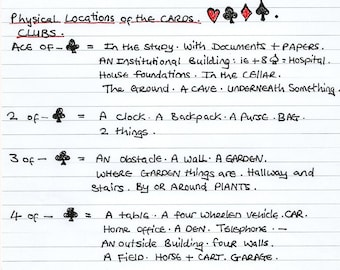 Physical Locations of the CARDS. ♥ ♣ ♦ ♠.
CLUBS.
ACE OF – ♣ = In the Study. With Documents + PAPERS.
AN Institutional Building: ie + 8 ♤ = Hospital.
House foundations. In the CELLAR.
The Ground. A CAVE. UNDERNEATH Something.
2 of – ♣ = A Clock. A Backpack. A Purse. BAG.
2 things.
3 of – ♣ = AN obstacle. A wall. A GARDEN.
WHERE GARDEN things are. Hallway and
Stairs. By OR Around PLANTS.
4 of – ♣ = A table. A four wheeled vehicle. CAR.
Home Office. A DEN. Telephone. –
AN outside Building. four Walls.
A FIELD. Horse + CART. GARAGE.